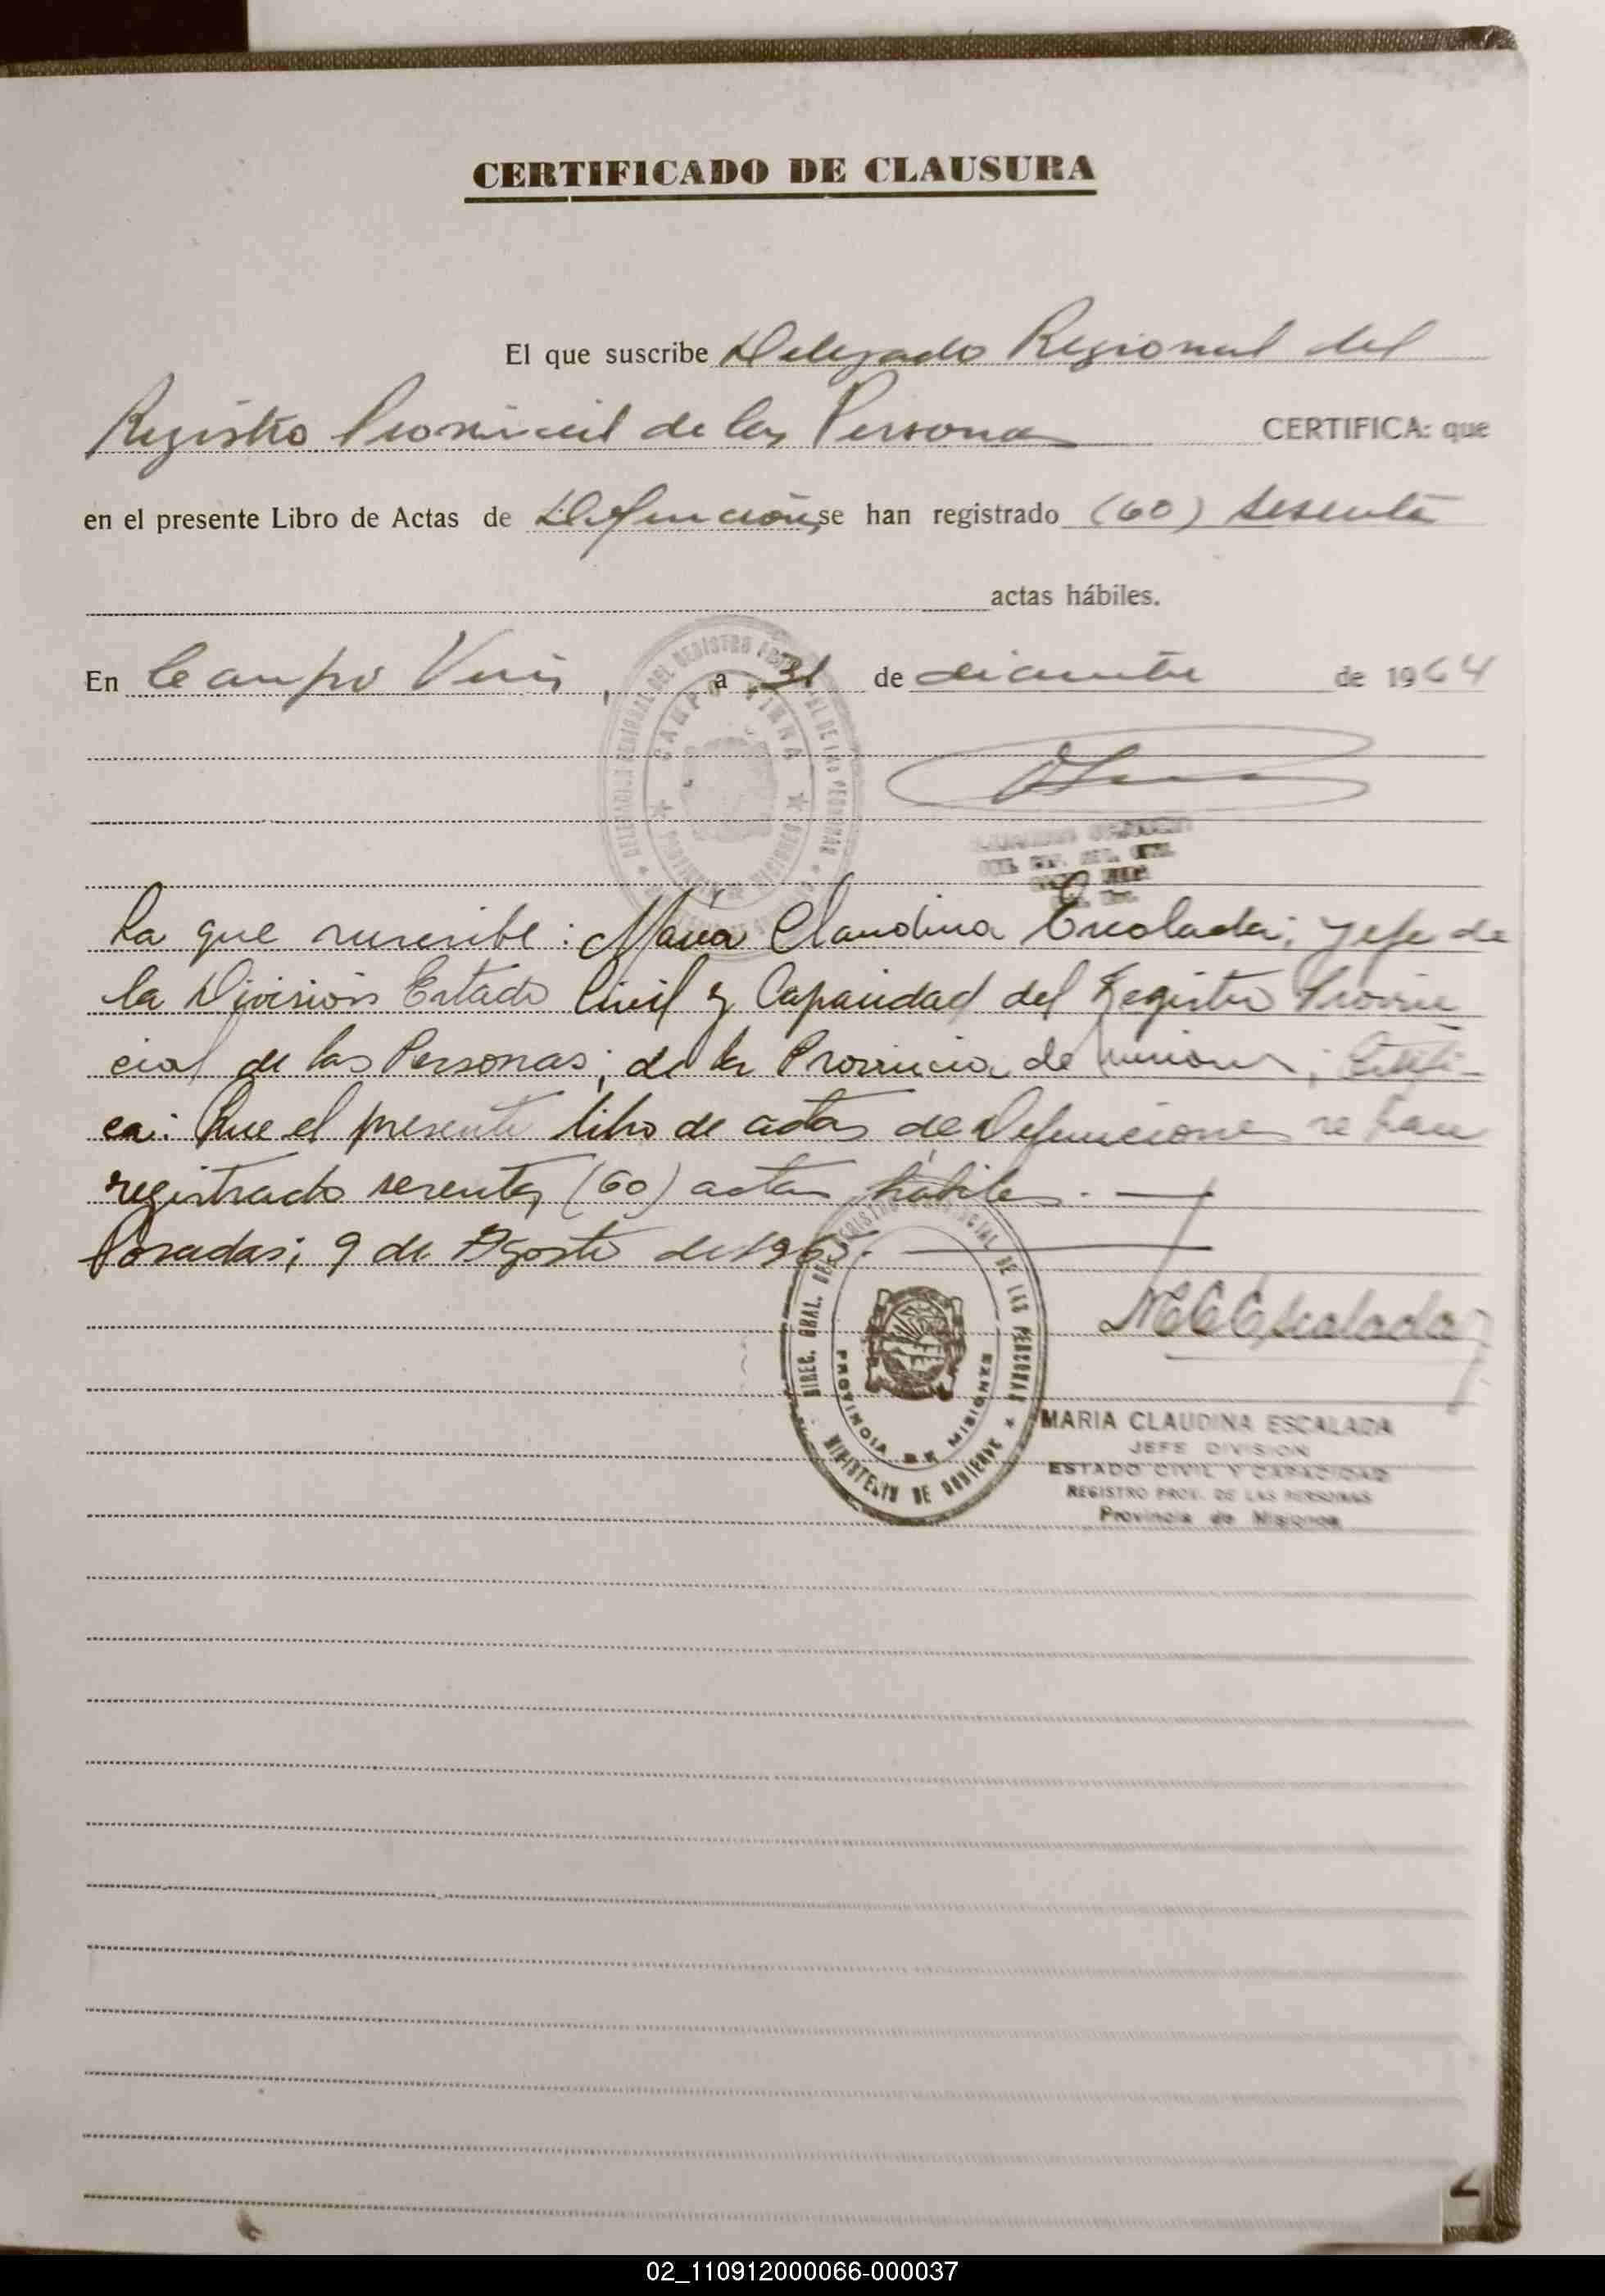 CERTIFICADO DE CLAUSURA
El que suscribe Delegado Regional del
Registro Provincial de las Personas CERTIFICA: que
en el presente Libro de Actas de Defunciones se han registrado (60) sesenta
actas hábiles.
En Campo Viera, a 31 de diciembre de 1964
CAMPO VIERA
PROVINCIA DE MISIONES
La que suscribe: María Claudina Escalada; Jefe de
la División Estado Civil y Capacidad del Registro Provin
cial de las Personas; de la Provincia de Misiones; Certifi-
ca: Que el presente libro de actas de Defunciones se han
registrado sesenta (60) actas hábiles.
Posadas; 9 de Agosto de 1965.
DIREC. GRAL. DEL REGISTRO PROVINCIAL DE LAS PERSONAS
PROVINCIA DE MISIONES
MINISTERIO DE GOBIERNO
MCEscalada
MARIA CLAUDINA ESCALADA
JEFE DIVISION
ESTADO CIVIL Y CAPACIDAD
REGISTRO PROV. DE LAS PERSONAS
Provincia de Misiones
02_110912000066-000037